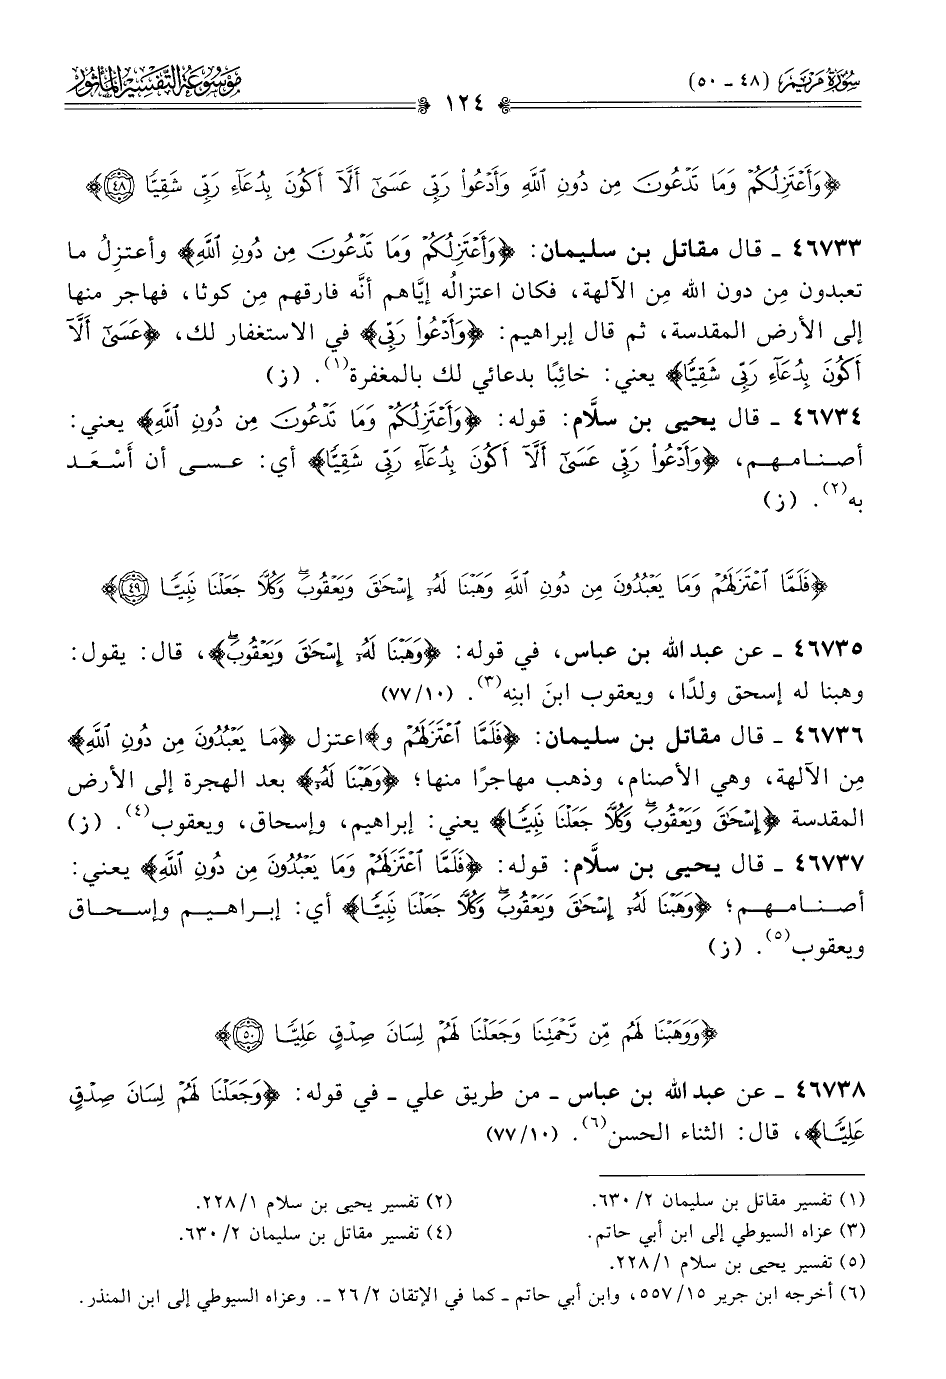 سُورَةُ مَرْيَمَ (٤٨ - ٥٠)
١٢٤
مَوْسُوعَةُ التَّفْسِيرِ المَأْثُور
﴿وَأَعْتَزِلُكُمْ وَمَا تَدْعُونَ مِن دُونِ ٱللَّهِ وَأَدْعُواْ رَبِّى عَسَىٰٓ أَلَّآ أَكُونَ بِدُعَآءِ رَبِّى شَقِيًّا ٤٨﴾
٤٦٧٣٣ ـ قال مقاتل بن سليمان: ﴿وَأَعْتَزِلُكُمْ وَمَا تَدْعُونَ مِن دُونِ ٱللَّهِ﴾ وأعتزِلُ ما
تعبدون مِن دون الله مِن الآلهة، فكان اعتزالُه إيَّاهم أنَّه فارقهم مِن كوثا، فهاجر منها
إلى الأرض المقدسة، ثم قال إبراهيم: ﴿وَأَدْعُواْ رَبِّى﴾ في الاستغفار لك، ﴿عَسَىٰٓ أَلَّآ
أَكُونَ بِدُعَآءِ رَبِّى شَقِيًّا﴾ يعني: خائِبًا بدعائي لك بالمغفرة(١). (ز)
٤٦٧٣٤ ـ قال يحيى بن سلَّام: قوله: ﴿وَأَعْتَزِلُكُمْ وَمَا تَدْعُونَ مِن دُونِ ٱللَّهِ﴾ يعني:
أصنامهم، ﴿وَأَدْعُواْ رَبِّى عَسَىٰٓ أَلَّآ أَكُونَ بِدُعَآءِ رَبِّى شَقِيًّا﴾ أي: عسى أن أَسْعَد
به(٢). (ز)
﴿فَلَمَّا ٱعْتَزَلَهُمْ وَمَا يَعْبُدُونَ مِن دُونِ ٱللَّهِ وَهَبْنَا لَهُۥٓ إِسْحَٰقَ وَيَعْقُوبَۖ وَكُلًّا جَعَلْنَا نَبِيًّا ٤٩﴾
٤٦٧٣٥ ـ عن عبد الله بن عباس، في قوله: ﴿وَهَبْنَا لَهُۥٓ إِسْحَٰقَ وَيَعْقُوبَۖ﴾، قال: يقول:
وهبنا له إسحق ولدًا، ويعقوب ابنَ ابنِه(٣). (٧٧/١٠)
٤٦٧٣٦ ـ قال مقاتل بن سليمان: ﴿فَلَمَّا ٱعْتَزَلَهُمْ و﴾اعتزل ﴿مَا يَعْبُدُونَ مِن دُونِ ٱللَّهِ﴾
مِن الآلهة، وهي الأصنام، وذهب مهاجرًا منها؛ ﴿وَهَبْنَا لَهُۥٓ﴾ بعد الهجرة إلى الأرض
المقدسة ﴿إِسْحَٰقَ وَيَعْقُوبَۖ وَكُلًّا جَعَلْنَا نَبِيًّا﴾ يعني: إبراهيم، وإسحاق، ويعقوب(٤). (ز)
٤٦٧٣٧ ـ قال يحيى بن سلَّام: قوله: ﴿فَلَمَّا ٱعْتَزَلَهُمْ وَمَا يَعْبُدُونَ مِن دُونِ ٱللَّهِ﴾ يعني:
أصنامهم؛ ﴿وَهَبْنَا لَهُۥٓ إِسْحَٰقَ وَيَعْقُوبَۖ وَكُلًّا جَعَلْنَا نَبِيًّا﴾ أي: إبراهيم وإسحاق
ويعقوب(٥). (ز)
﴿وَوَهَبْنَا لَهُم مِّن رَّحْمَتِنَا وَجَعَلْنَا لَهُمْ لِسَانَ صِدْقٍ عَلِيًّا ٥٠﴾
٤٦٧٣٨ ـ عن عبد الله بن عباس ـ من طريق علي ـ في قوله: ﴿وَجَعَلْنَا لَهُمْ لِسَانَ صِدْقٍ
عَلِيًّا﴾، قال: الثناء الحسن(٦). (٧٧/١٠)
(١) تفسير مقاتل بن سليمان ٦٣٠/٢.
(٢) تفسير يحيى بن سلام ٢٢٨/١.
(٣) عزاه السيوطي إلى ابن أبي حاتم.
(٤) تفسير مقاتل بن سليمان ٦٣٠/٢.
(٥) تفسير يحيى بن سلام ٢٢٨/١.
(٦) أخرجه ابن جرير ٥٥٧/١٥، وابن أبي حاتم ـ كما في الإتقان ٢٦/٢ ـ. وعزاه السيوطي إلى ابن المنذر.